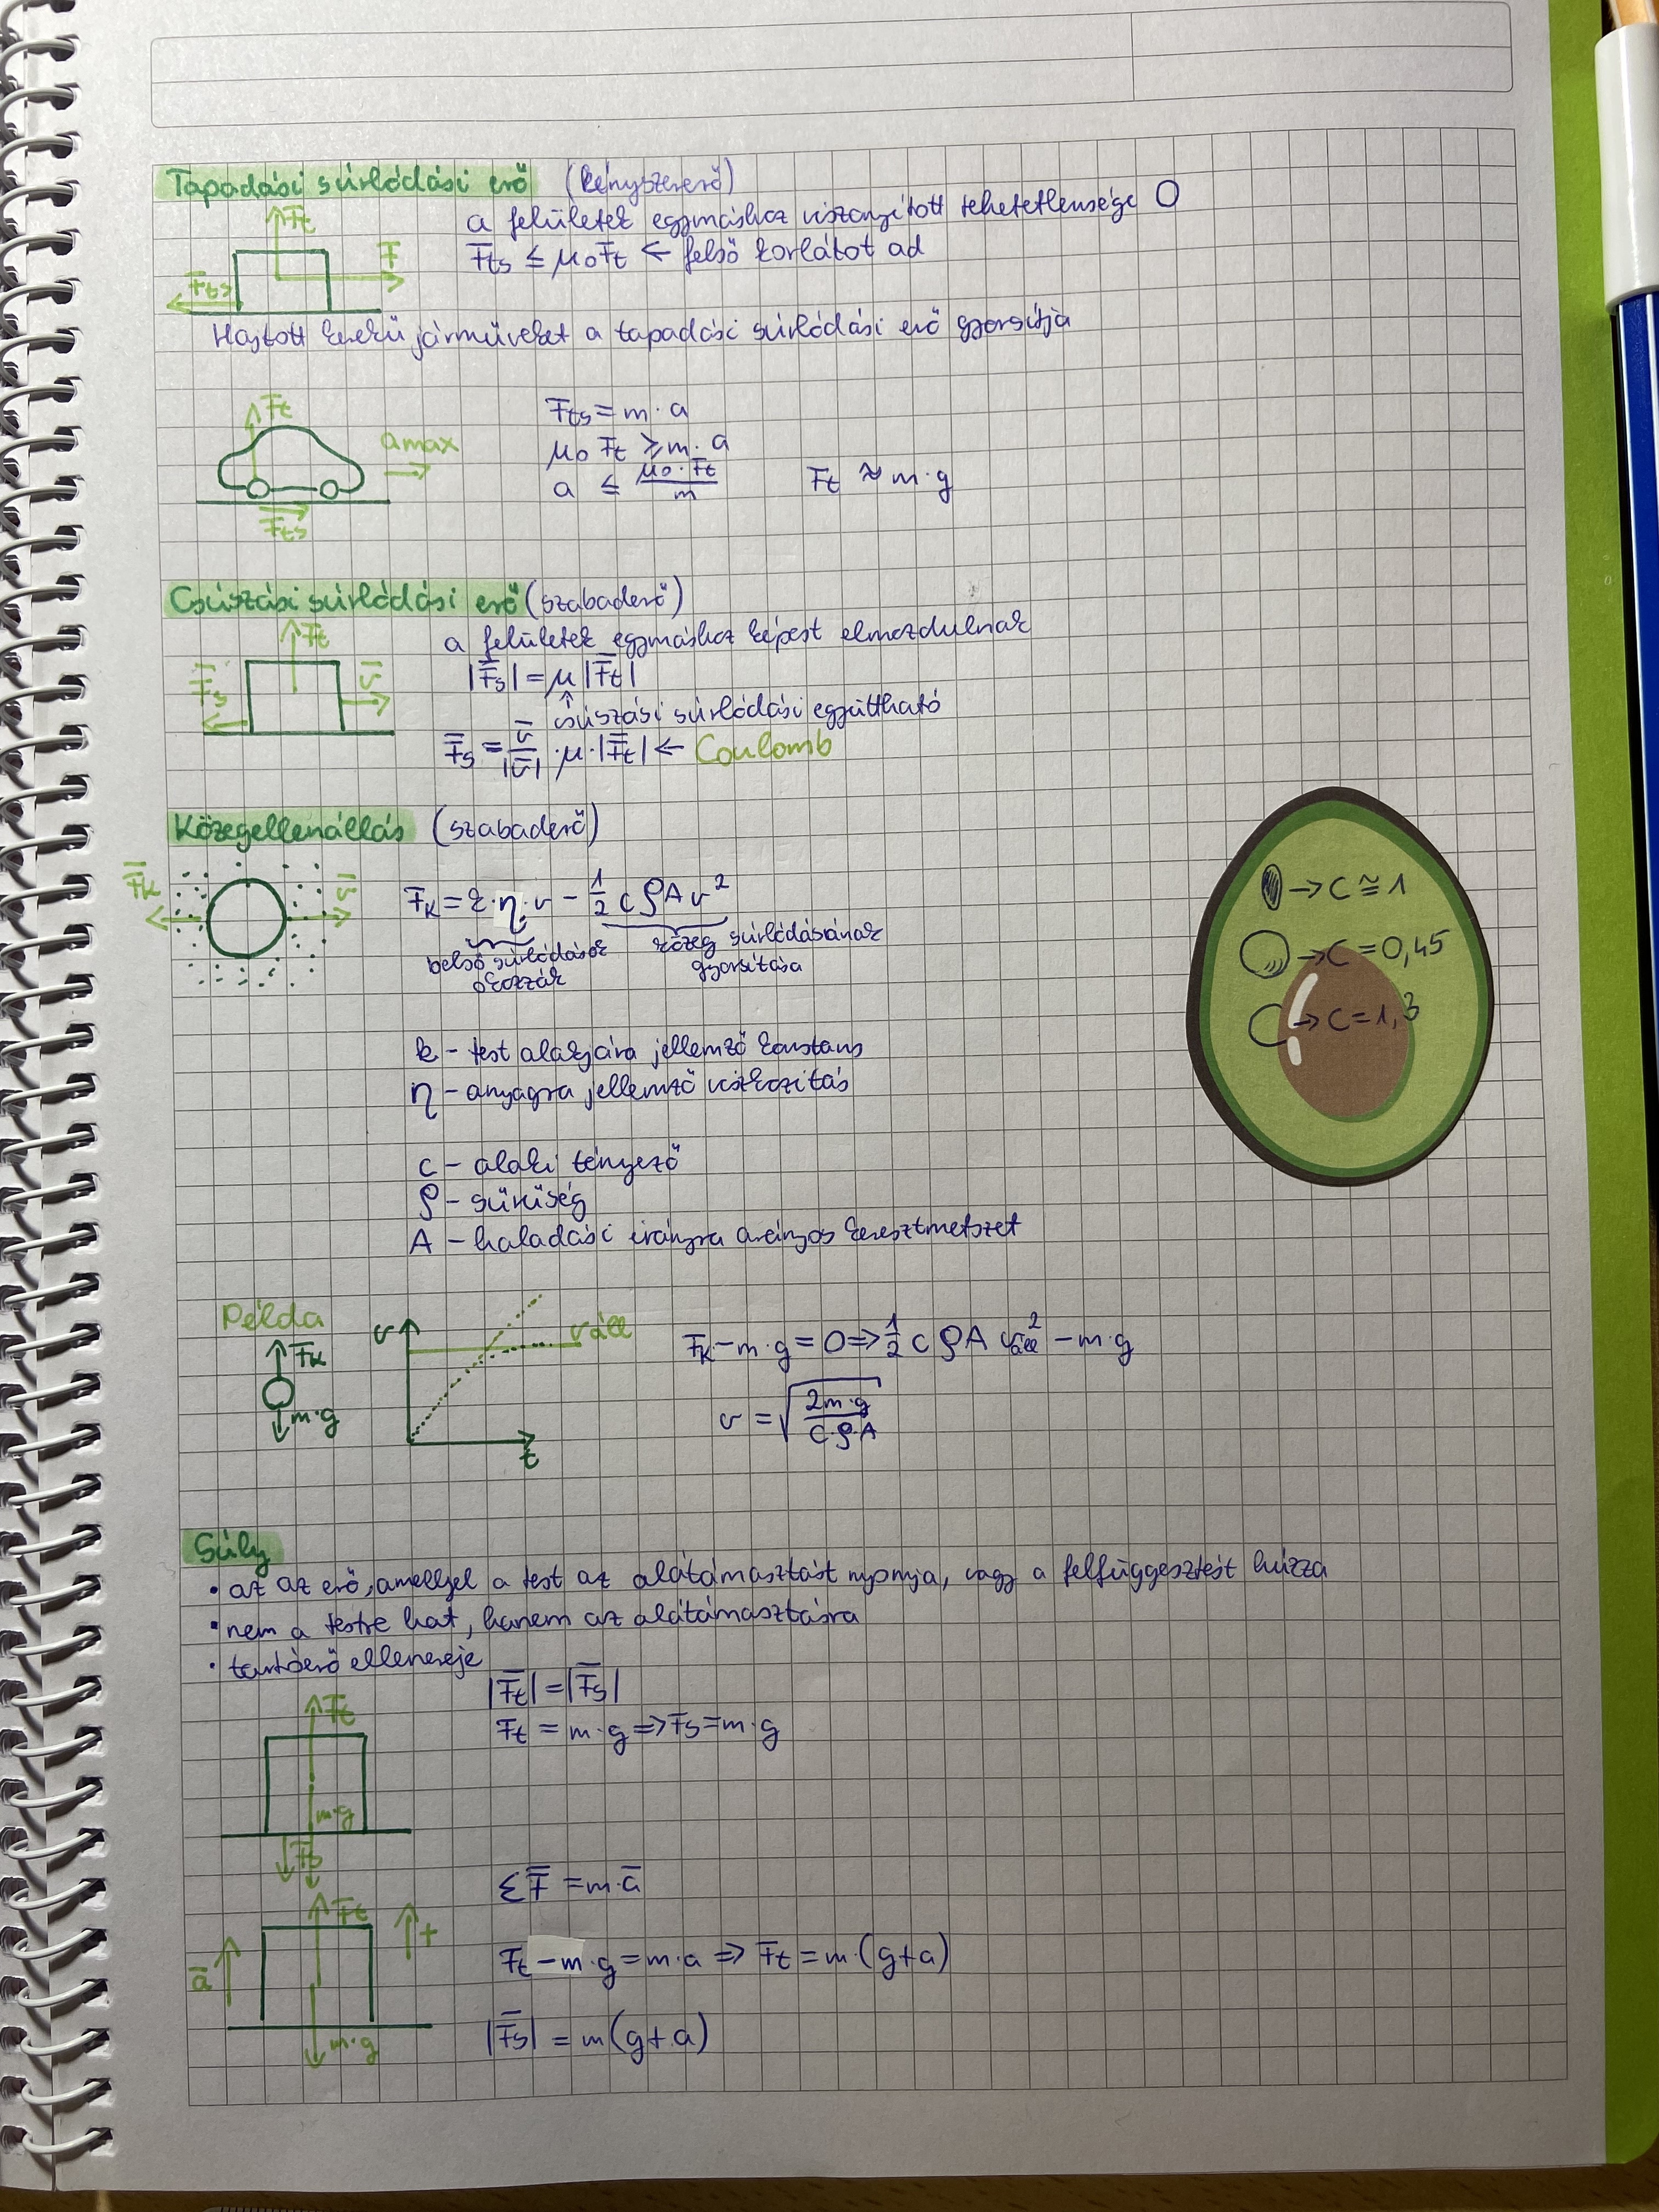 Tapadási súrlódási erő (kényszererő)
a felületek egymáshoz viszonyított tehetetlensége 0
F̅t
F̅
F̅ts
F̅ts ≤ μ₀F̅t ← felső korlátot ad
Hajtott kerekű járműveket a tapadási súrlódási erő gyorsítja
F̅t
amax
F̅ts
Fts = m·a
μ₀ Ft ≥ m·a
a ≤ μ₀·Ft / m
Ft ≈ m·g
Csúszási súrlódási erő (szabaderő)
a felületek egymáshoz képest elmozdulnak
F̅t
F̅s
v̅
|F̅s| = μ |F̅t|
↑ csúszási súrlódási együttható
F̅s = v̅/|v̅| · μ·|F̅t| ← Coulomb
Közegellenállás (szabaderő)
F̅k
v̅
F̅k = k·η·v − 1/2 c ρ A v²
belső súrlódások okozzák
közeg súrlódásának gyorsítása
→ C ≅ 1
→ C = 0,45
→ C = 1,3
k – test alakjára jellemző konstans
η – anyagra jellemző viszkozitás
c – alaki tényező
ρ – sűrűség
A – haladási irányra arányos keresztmetszet
Példa
F̅k
m·g
v
váll
t
Fk − m·g = 0 ⇒ 1/2 c ρ A váll² − m·g
v = √(2m·g / c·ρ·A)
Súly
• az az erő, amellyel a test az alátámasztást nyomja, vagy a felfüggesztést húzza
• nem a testre hat, hanem az alátámasztásra
• tartóerő ellenereje
F̅t
m·g
F̅s
|F̅t| = |F̅s|
Ft = m·g ⇒ Fs = m·g
ΣF̅ = m·a̅
F̅t
+
a̅
m·g
Ft − m·g = m·a ⇒ Ft = m·(g+a)
|F̅s| = m(g+a)